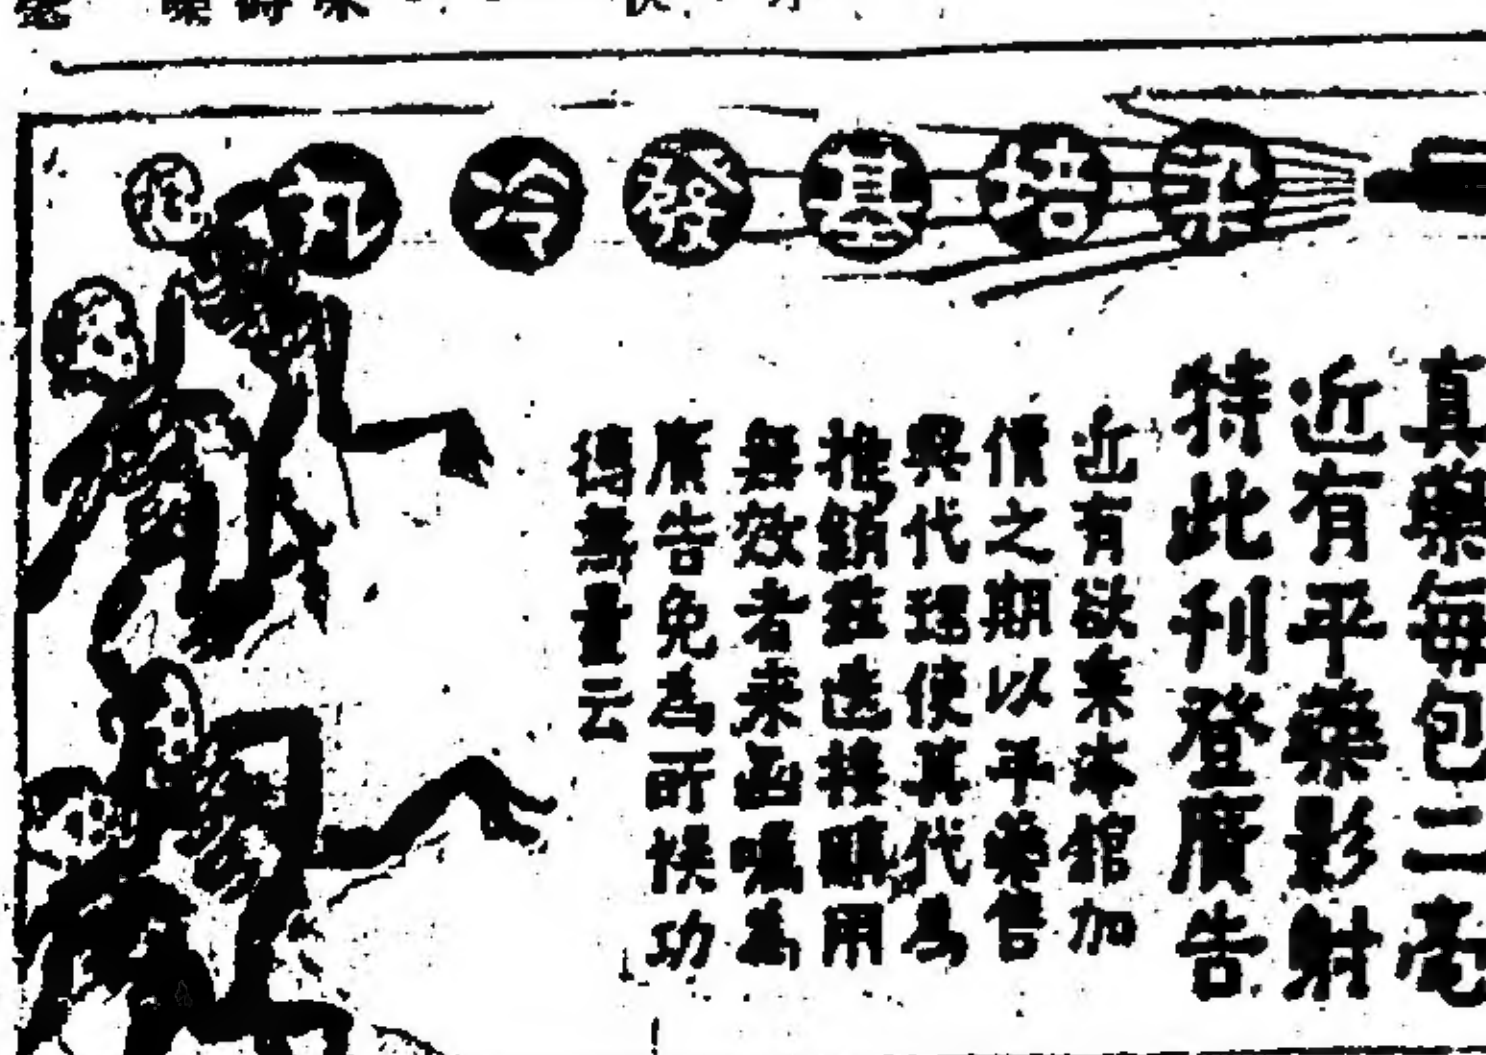 梁培基發冷丸
真藥每包二毫
近有平藥影射
特此刊登廣告
近有欲本館加
價之期以平藥售
與代理使其代為
推銷茲接購用
無效者來函囑為
廣告免為所悞功
得無量云